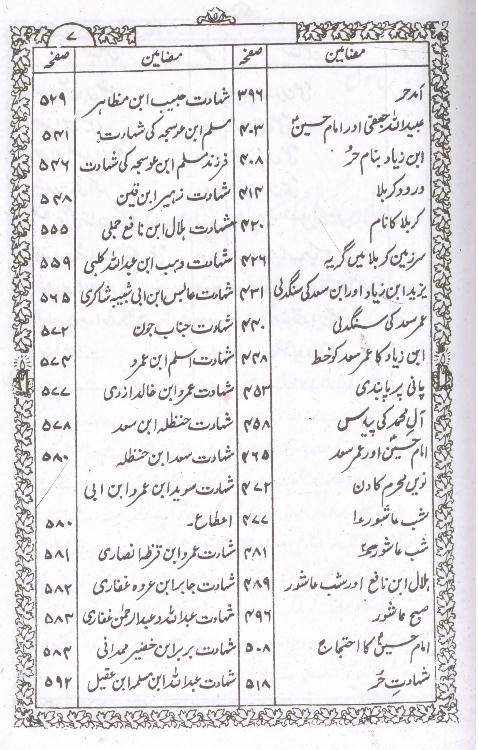 ۷
مضامین صفحہ مضامین صفحہ
آمد حر ۳۹۶
عبیداللہ جعفی اور امام حسینؑ ۴۰۳
ابن زیاد بنام حر ۴۰۸
ورود کربلا ۴۱۴
کربلا کا نام ۴۲۰
سرزمین کربلا میں گریہ ۴۲۶
یزید ابن زیاد اور ابن سعد کی سنگدلی ۴۳۱
عمر سعد کی سنگدلی ۴۴۰
ابن زیاد کا عمر سعد کو خط ۴۴۸
پانی پر پابندی ۴۵۳
آلِ محمد کی پیاس ۴۵۸
امام حسینؑ اور عمر سعد ۴۶۵
نویں محرم کا دن ۴۷۲
شب عاشور ۱ ۴۷۷
شب عاشور ۲ ۴۸۱
ہلال ابن نافع اور شب عاشور ۴۸۹
صبح عاشور ۴۹۶
امام حسینؑ کا احتجاج ۵۰۸
شہادتِ حُر ۵۱۸
شہادت حبیب ابن مظاہر ۵۲۹
مسلم ابن عوسجہ کی شہادت ۵۴۱
فرزند مسلم ابن عوسجہ کی شہادت ۵۴۶
شہادت زہیر ابن قین ۵۴۸
شہادت ہلال ابن نافع جملی ۵۵۵
شہادت وہب ابن عبداللہ کلبی ۵۵۹
شہادت عابس ابن ابی شبیہ شاکری ۵۶۵
شہادت جناب جون ۵۷۲
شہادت اسلم ابن عمرو ۵۷۴
شہادت عمرو ابن خالد ازری ۵۷۷
شہادت حنظلہ ابن سعد ۵۷۸
شہادت سعد ابن حنظلہ ۵۸۰
شہادت سوید ابن عمرو ابن ابی
اعطاع۔ ۵۸۰
شہادت عمرو ابن قرظہ انصاری ۵۸۱
شہادت جابر ابن عروہ غفاری ۵۸۲
شہادت عبداللہ و عبدالرحمٰن غفاری ۵۸۳
شہادت بریر ابن خضیر ہمدانی ۵۸۴
شہادت عبداللہ ابن مسلم ابن عقیل ۵۹۲